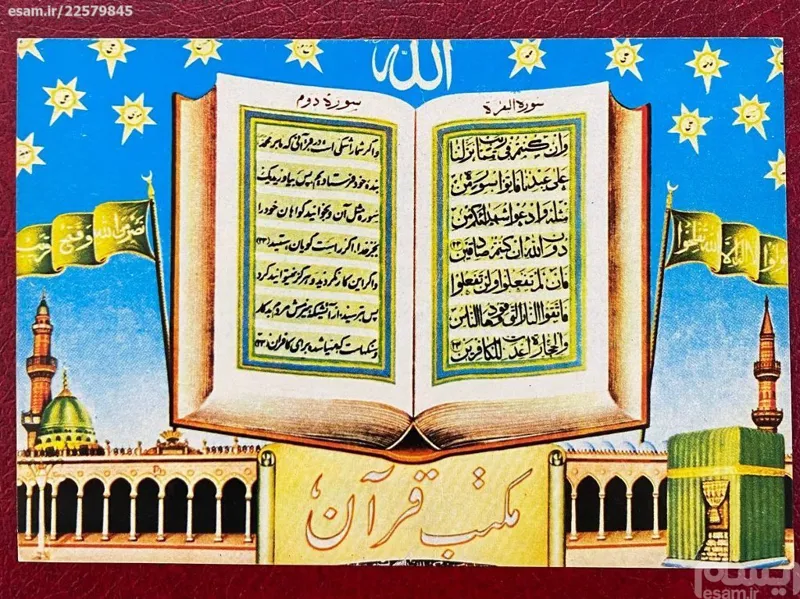 esam.ir/22579845
الله
سورة البقرة
وان كنتم فى ريب مما نزلنا
على عبدنا فاتوا بسورة من
مثله وادعوا شهداءكم من
دون الله ان كنتم صادقين (۲۳)
فان لم تفعلوا ولن تفعلوا
فاتقوا النار التى وقودها الناس
والحجارة اعدت للكافرين (۲۴)
سورهٔ دوم
واگر شما را شکی است در قرآنی که ما بر محمد
بنده خود فرستادیم پس بیاورید یک
سوره مثل آن و بخوانید گواهان خود را
بجز خدا اگر راست گویان هستید (۲۳)
واگر این کار نکردید و هرگز نتوانید کرد
پس بترسید از آتشیکه هیزمش مردم بدکار
و سنگهاست که مهیا شده برای کافران (۲۴)
قولوا لا اله الا الله تفلحوا
نصر من الله و فتح قریب
مکتب قرآن
esam.ir